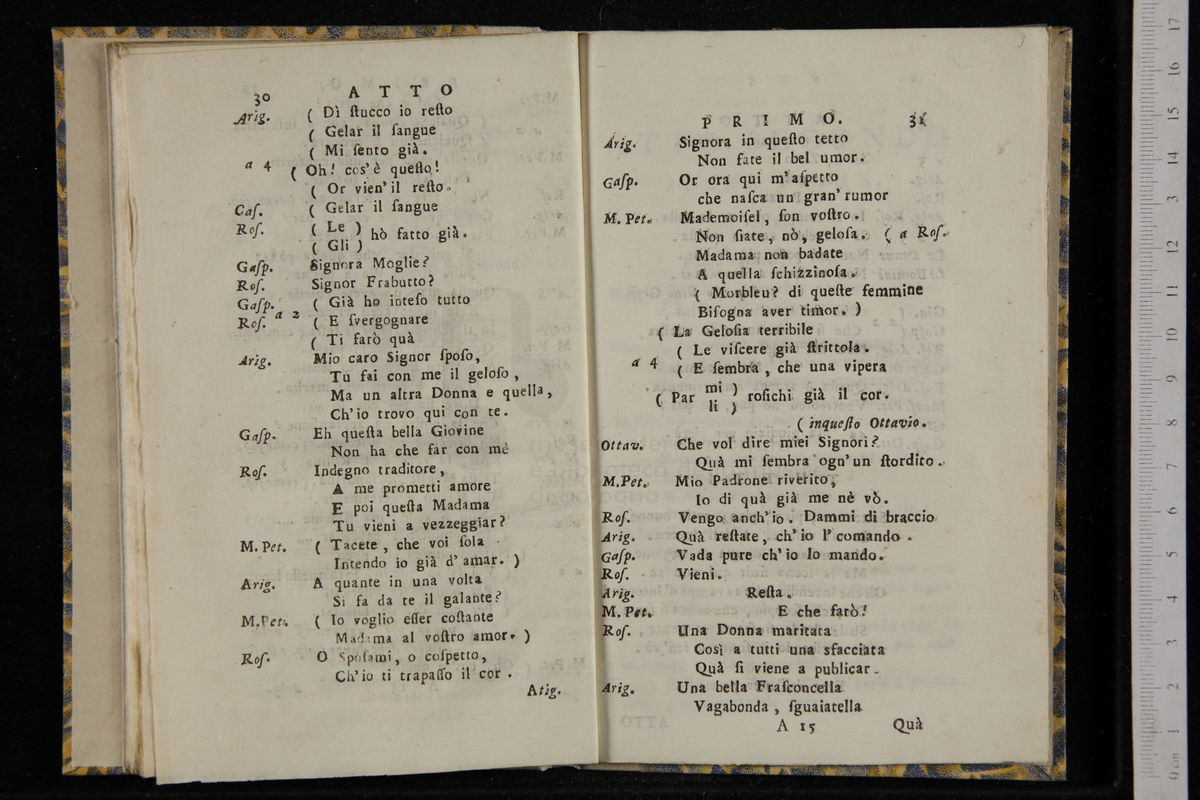 30 ATTO
Arig. ( Dì ſtucco io reſto
( Gelar il ſangue
( Mi ſento già.
a 4 ( Oh! cos'è queſto!
( Or vien' il reſto.
Caſ. ( Gelar il ſangue
Roſ. ( Le ) hò fatto già.
( Gli )
Gaſp. Signora Moglie?
Roſ. Signor Frabutto?
Gaſp. ( Già ho inteſo tutto
Roſ. a 2 ( E ſvergognare
( Ti farò quà
Arig. Mio caro Signor ſpoſo,
Tu fai con me il geloſo,
Ma un altra Donna e quella,
Ch'io trovo qui con te.
Gaſp. Eh queſta bella Giovine
Non ha che far con mè
Roſ. Indegno traditore,
A me prometti amore
E poi queſta Madama
Tu vieni a vezzeggiar?
M. Pet. ( Tacete, che voi ſola
Intendo io già d'amar. )
Arig. A quante in una volta
Si fa da te il galante?
M. Pet. ( Io voglio eſſer coſtante
Madama al voſtro amor. )
Roſ. O Spoſami, o coſpetto,
Ch'io ti trapaſſo il cor.
Atig.
PRIMO. 31
Arig. Signora in queſto tetto
Non fate il bel umor.
Gaſp. Or ora qui m'aſpetto
che naſca un gran' rumor
M. Pet. Mademoiſel, ſon voſtro.
Non ſiate, nò, geloſa. ( a Roſ.
Madama non badate
A quella ſchizzinoſa.
( Morbleu? di queſte femmine
Biſogna aver timor. )
( La Geloſia terribile
( Le viſcere già ſtrittola.
a 4 ( E ſembra, che una vipera
( Par mi ) roſichi già il cor.
li )
( inqueſto Ottavio.
Ottav. Che vol dire miei Signori?
Quà mi ſembra ogn'un ſtordito.
M. Pet. Mio Padrone riverito,
Io di quà già me nè vò.
Roſ. Vengo anch'io. Dammi di braccio
Arig. Quà reſtate, ch'io l' comando.
Gaſp. Vada pure ch'io lo mando.
Roſ. Vieni.
Arig. Reſta.
M. Pet. E che farò!
Roſ. Una Donna maritata
Così a tutti una sfacciata
Quà ſi viene a publicar.
Arig. Una bella Fraſconcella
Vagabonda, ſguaiatella
A 15 Quà
0 cm 1 2 3 4 5 6 7 8 9 10 11 12 13 14 15 16 17